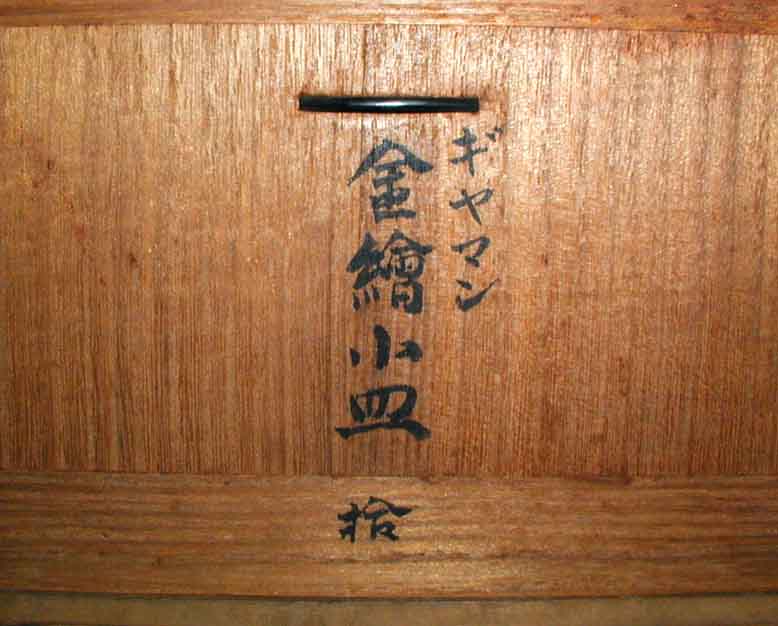 ギヤマン
金繪小皿
拾